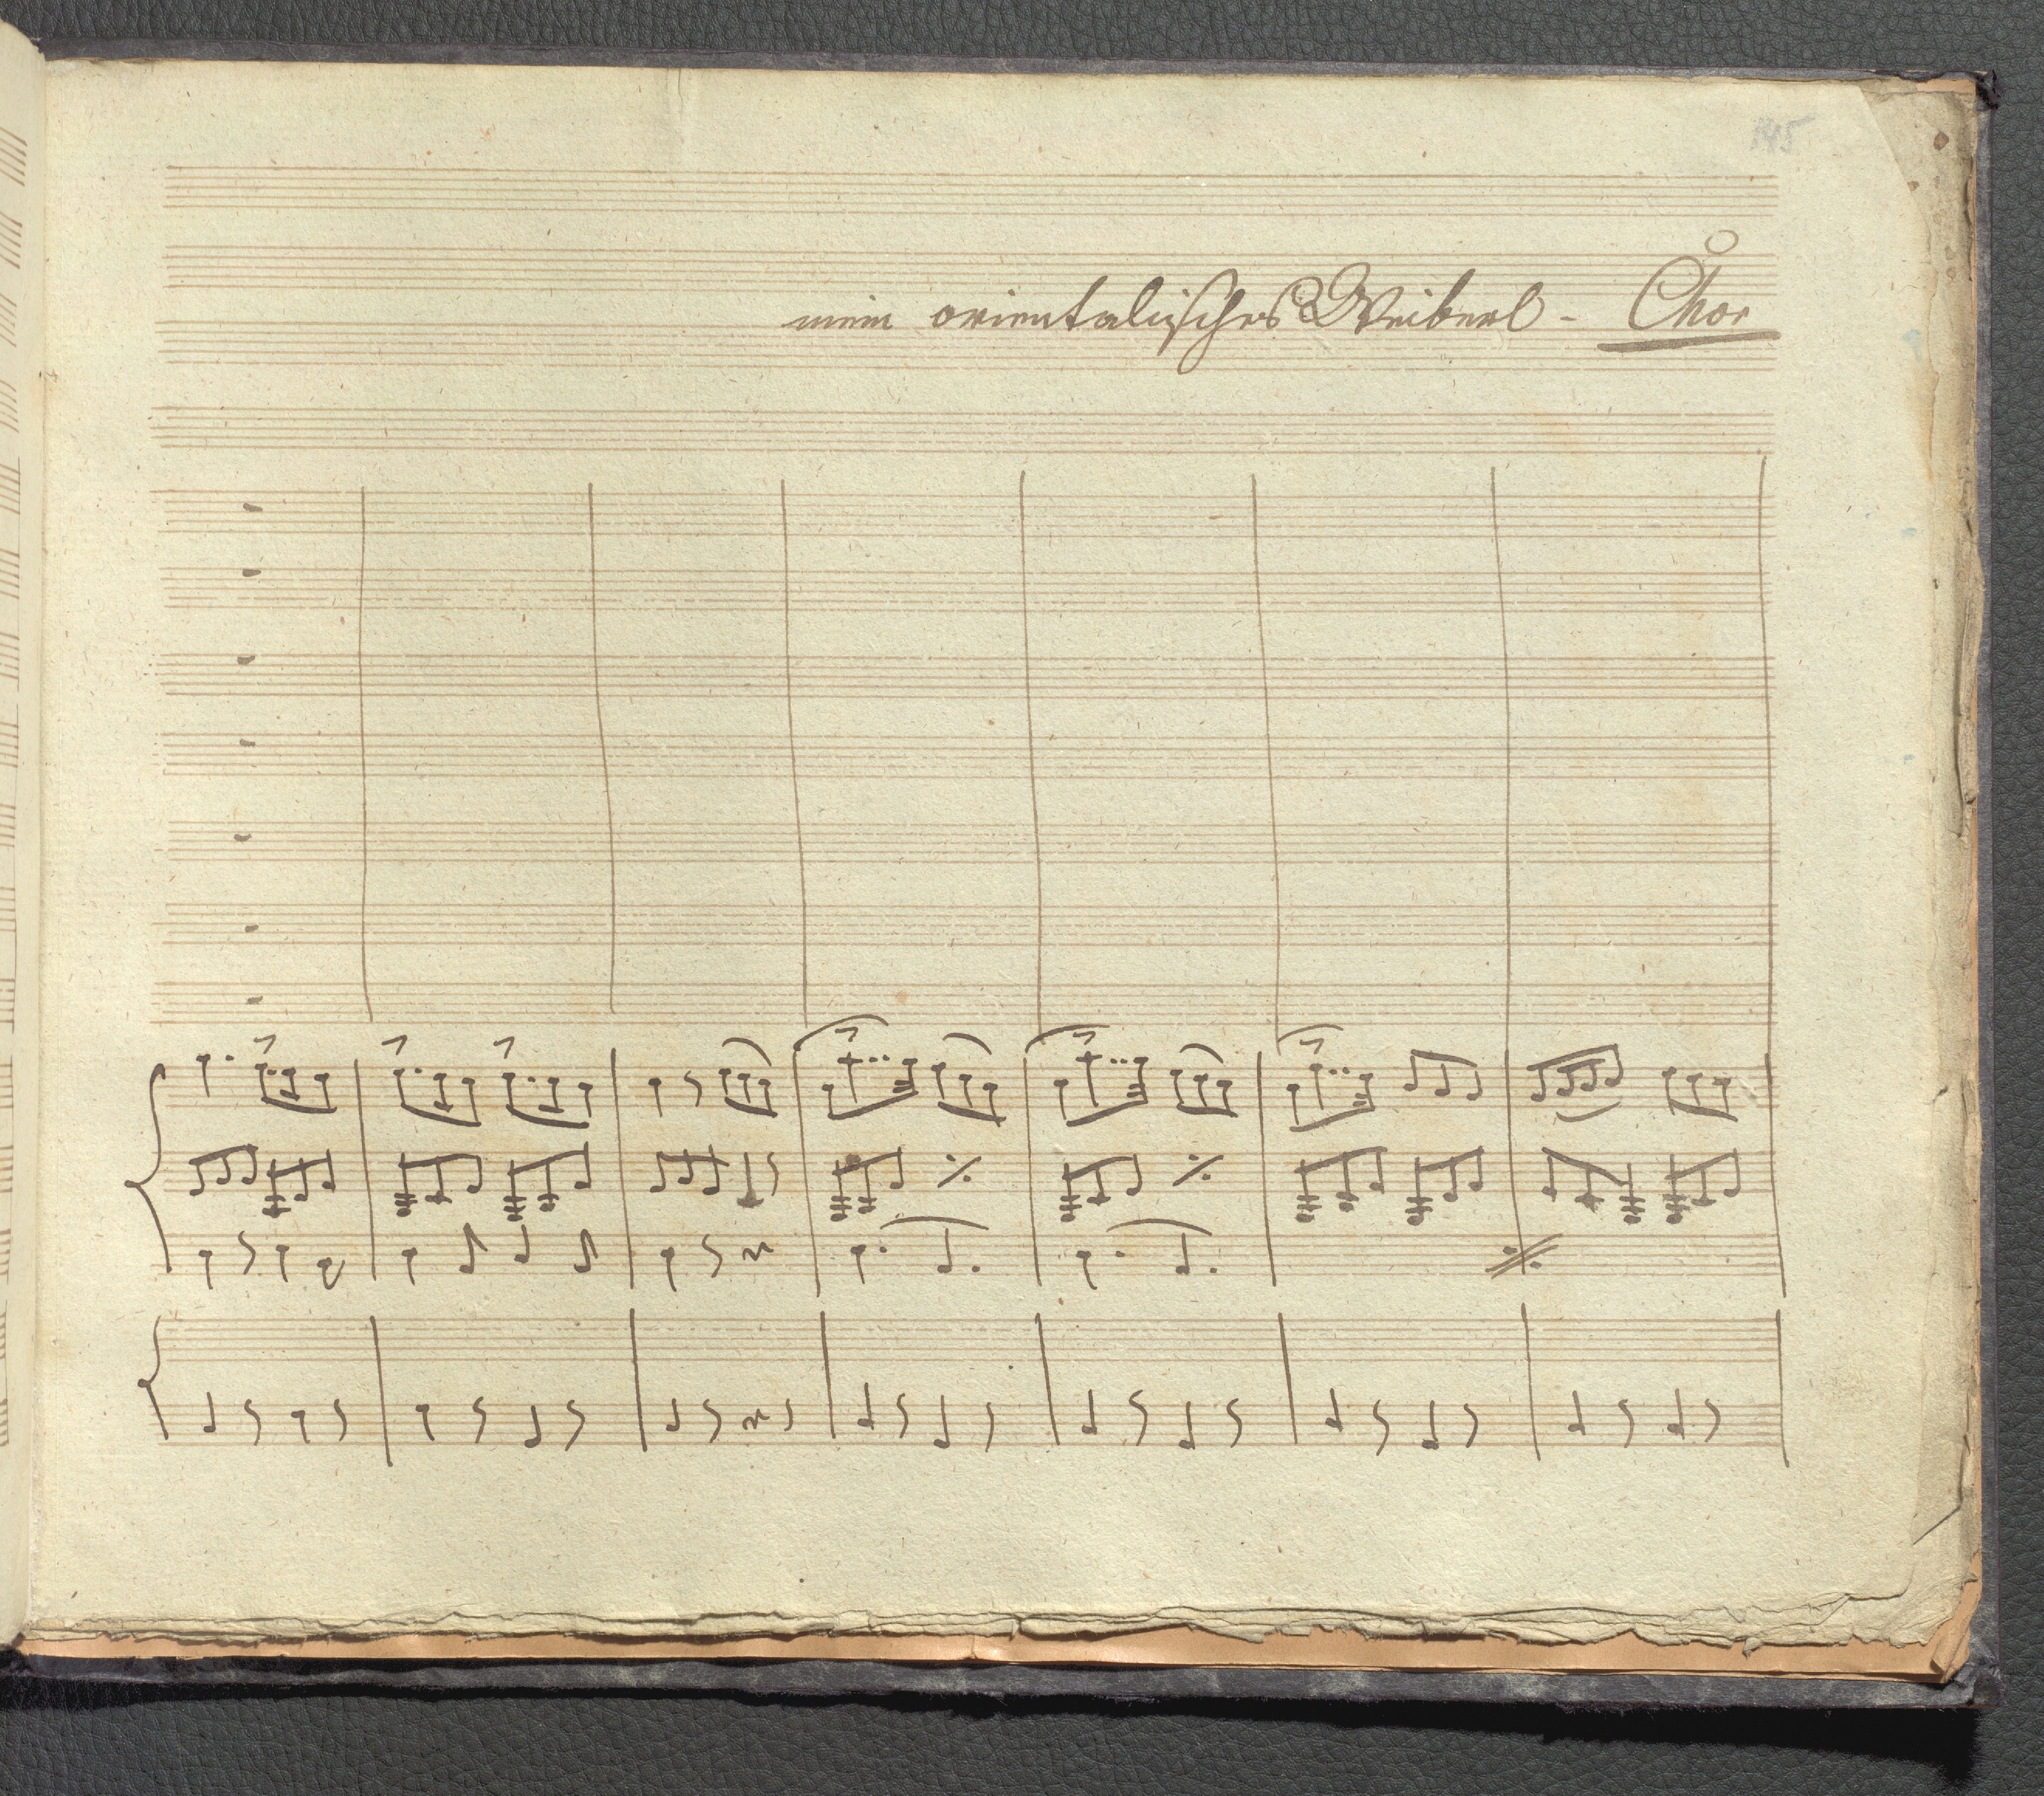 145
mein orientalisches Weiberl - Chor